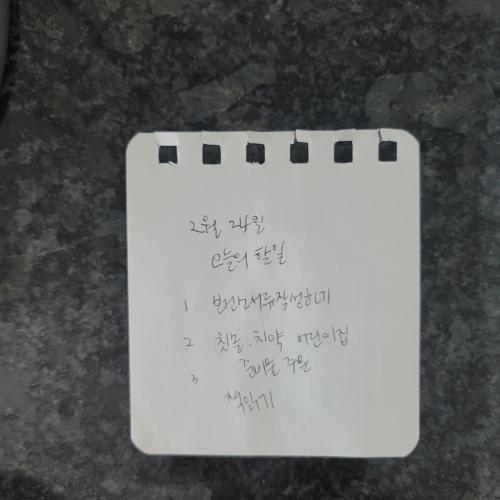 2월 24일
오늘의 할일
1. 보안서류작성하기
2. 칫솔. 치약 어린이집
준비물 주문
3
책읽기